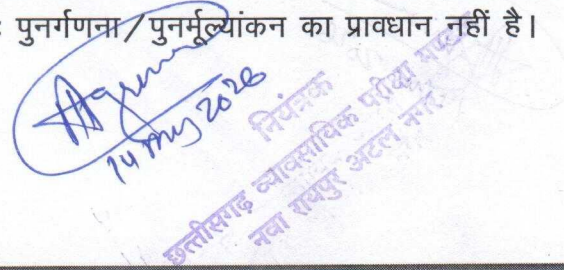 : पुनर्गणना/पुनर्मूल्यांकन का प्रावधान नहीं है।
14 May 2026
नियंत्रक
छत्तीसगढ़ व्यावसायिक परीक्षा मण्डल
नवा रायपुर अटल नगर